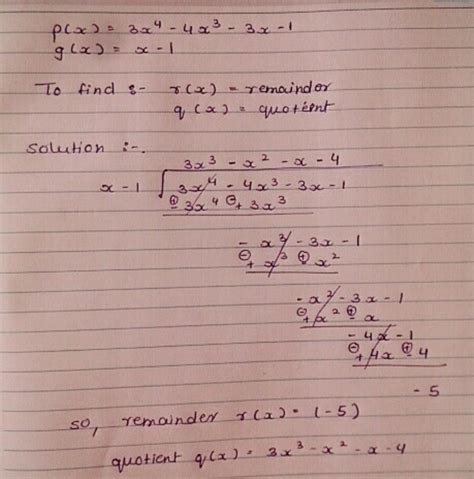 p(x) = 3x⁴ - 4x³ - 3x - 1
g(x) = x - 1
To find :- r(x) = remainder
q(x) = quotient
Solution :-.
3x³ - x² - x - 4
x - 1 √ 3x⁴ - 4x³ - 3x - 1
⊕ 3x⁴ ⊖ + 3x³
- x³ - 3x - 1
⊖ + x³ ⊕ x²
- x² - 3x - 1
⊖ + x² ⊕ x
- 4x - 1
⊖ + 4x ⊕ 4
- 5
so, remainder r(x) = (-5)
quotient q(x) = 3x³ - x² - x - 4